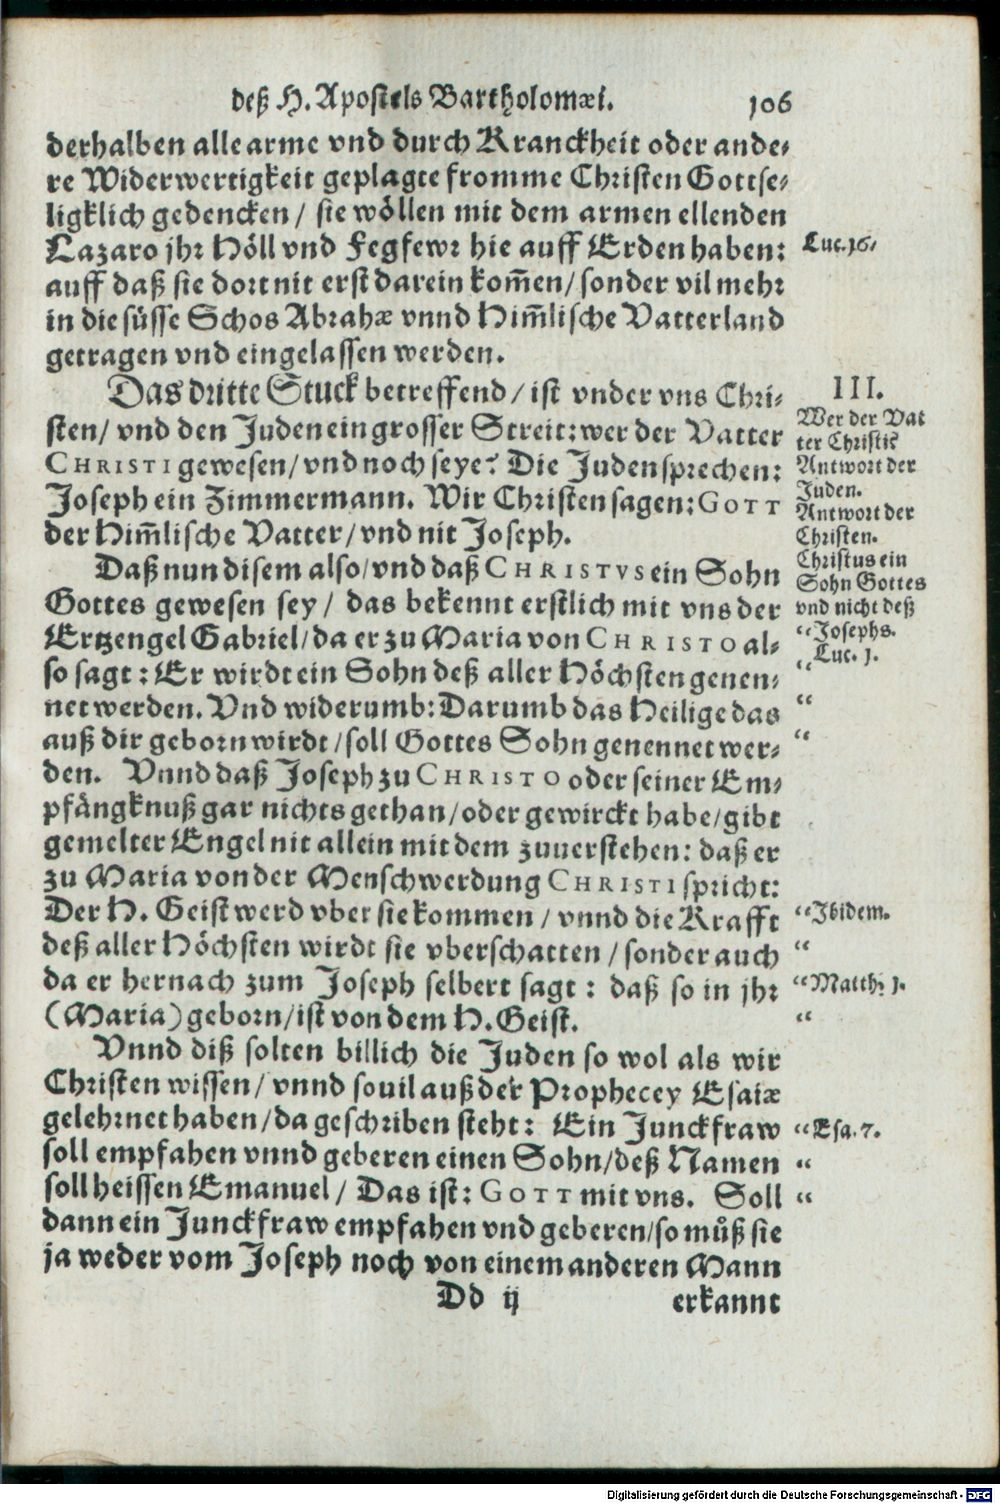 deß H. Apostels Bartholomæi. 106
derhalben alle arme vnd durch Kranckheit oder ande-
re Widerwertigkeit geplagte fromme Christen Gottse-
ligklich gedencken / sie wöllen mit dem armen ellenden
Lazaro jhr Höll vnd Fegfewr hie auff Erden haben:
Luc. 16.
auff daß sie dort nit erst darein kom̃en / sonder vil mehr
in die süsse Schos Abrahæ vnnd Him̃lische Vatterland
getragen vnd eingelassen werden.
Das dritte Stuck betreffend / ist vnder vns Chri-
III.
sten / vnd den Juden ein grosser Streit: wer der Vatter
Wer der Vat
ter Christi?
CHRISTI gewesen / vnd noch seye? Die Juden sprechen:
Antwort der
Juden.
Joseph ein Zimmermann. Wir Christen sagen: GOTT
Antwort der
Christen.
der Him̃lische Vatter / vnd nit Joseph.
Daß nun disem also / vnd daß CHRISTVS ein Sohn
Christus ein
Sohn Gottes
Gottes gewesen sey / das bekennt erstlich mit vns der
vnd nicht deß
Ertzengel Gabriel / da er zu Maria von CHRISTO al-
“ Josephs.
Luc. 1.
so sagt: Er wirdt ein Sohn deß aller Höchsten genen-
“
net werden. Vnd widerumb: Darumb das Heilige das
“
auß dir geborn wirdt / soll Gottes Sohn genennet wer-
“
den. Vnnd daß Joseph zu CHRISTO oder seiner Em-
pfängknuß gar nichts gethan / oder gewirckt habe / gibt
gemelter Engel nit allein mit dem zuuerstehen: daß er
zu Maria von der Menschwerdung CHRISTI spricht:
Der H. Geist werd vber sie kommen / vnnd die Krafft
“ Ibidem.
deß aller Höchsten wirdt sie vberschatten / sonder auch
“
da er hernach zum Joseph selbert sagt: daß so in jhr
“ Matth. 1.
(Maria) geborn / ist von dem H. Geist.
“
Vnnd diß solten billich die Juden so wol als wir
Christen wissen / vnnd souil auß der Prophecey Esaiæ
gelehrnet haben / da geschriben steht: Ein Junckfraw
“ Esa. 7.
soll empfahen vnnd geberen einen Sohn / deß Namen
“
soll heissen Emanuel / Das ist: GOTT mit vns. Soll
“
dann ein Junckfraw empfahen vnd geberen / so můß sie
ja weder vom Joseph noch von einem anderen Mann
Dd ij erkannt
Digitalisierung gefördert durch die Deutsche Forschungsgemeinschaft - DFG